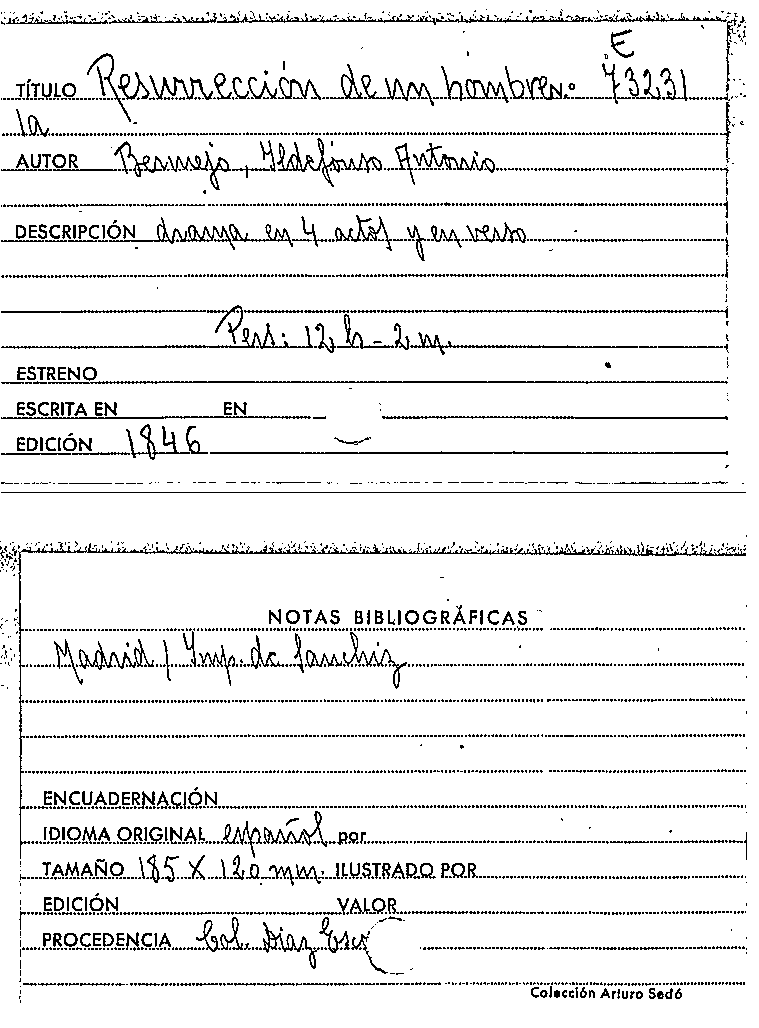 E
TÍTULO Resurrección de un hombre.= 73231
la
AUTOR Bermejo, Ildefonso Antonio
DESCRIPCIÓN drama en 4 actos y en verso
Pers: 12 h - 2 m.
ESTRENO
ESCRITA EN EN
EDICIÓN 1846
NOTAS BIBLIOGRÁFICAS
Madrid / Imp. de Sanchiz
ENCUADERNACIÓN
IDIOMA ORIGINAL español por
TAMAÑO 185 X 120 mm. ILUSTRADO POR
EDICIÓN VALOR
PROCEDENCIA Col. Díaz Esco
Colección Arturo Sedó